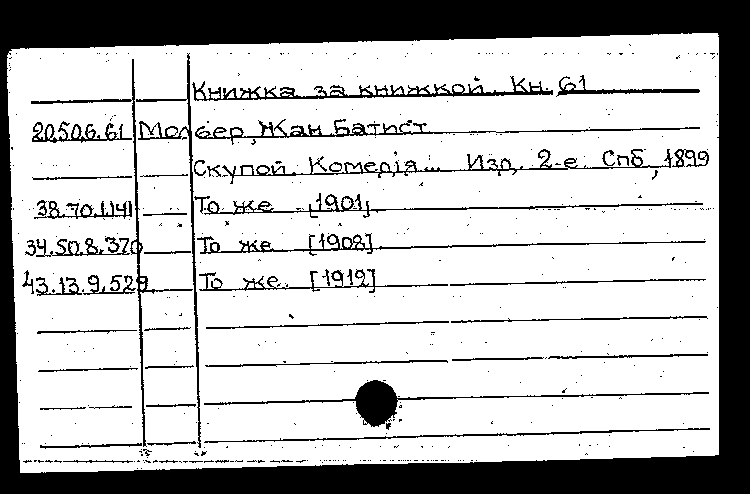 Книжка за книжкой. Кн. 61
20.50.6.61 Мольер, Жан Батист
Скупой. Комедiя... Изд. 2-е. Спб, 1899
38.70.1.141 То же [1901].
34.50.8.370 То же [1908].
43.13.9.529. То же. [1912]